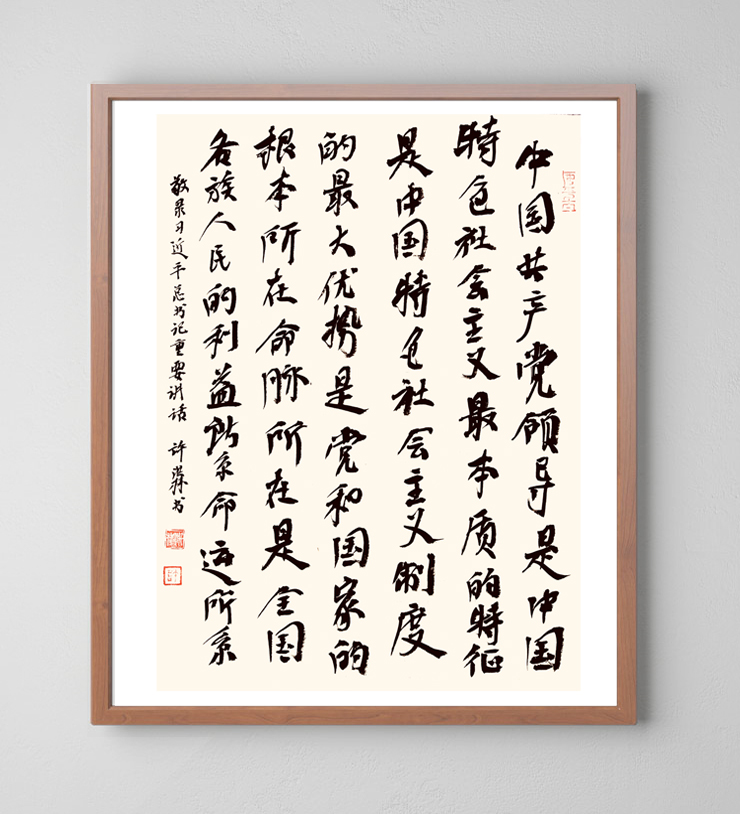 中国共产党领导是中国
特色社会主义最本质的特征
是中国特色社会主义制度
的最大优势是党和国家的
根本所在命脉所在是全国
各族人民的利益所系命运所系
敬录习近平总书记重要讲话 许 书